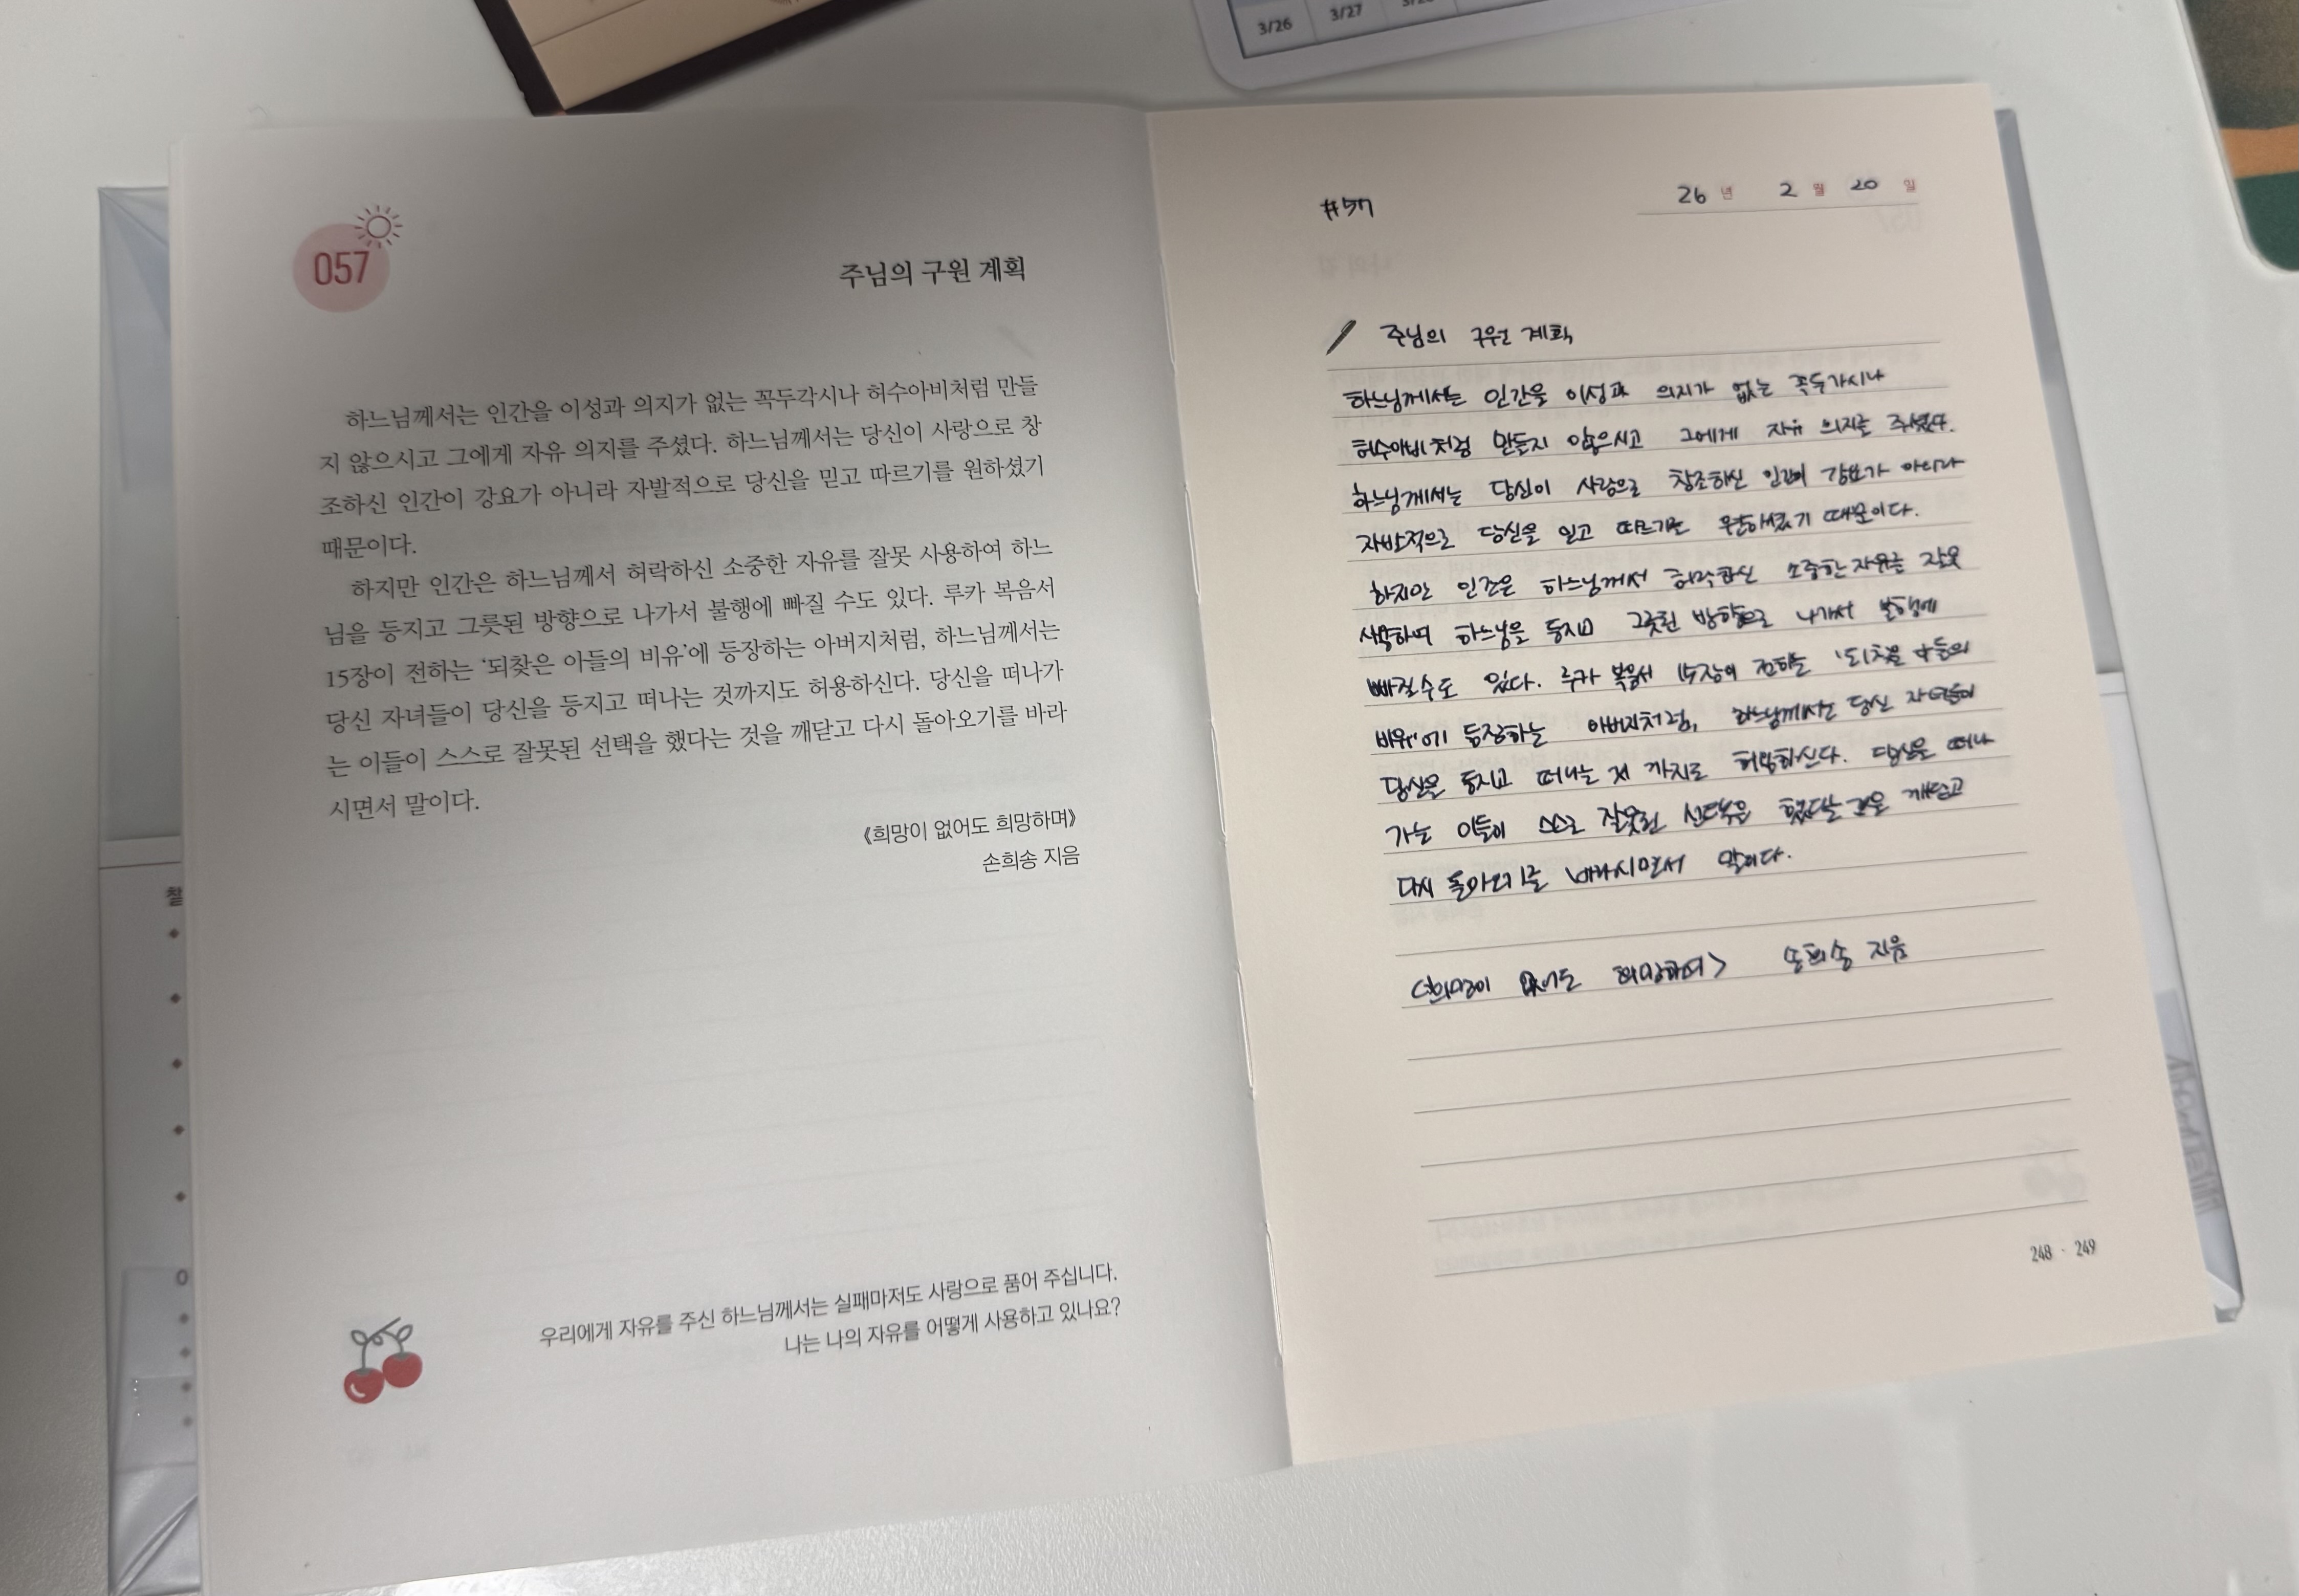 3/26 3/27
057
주님의 구원 계획
하느님께서는 인간을 이성과 의지가 없는 꼭두각시나 허수아비처럼 만들
지 않으시고 그에게 자유 의지를 주셨다. 하느님께서는 당신이 사랑으로 창
조하신 인간이 강요가 아니라 자발적으로 당신을 믿고 따르기를 원하셨기
때문이다.
하지만 인간은 하느님께서 허락하신 소중한 자유를 잘못 사용하여 하느
님을 등지고 그릇된 방향으로 나가서 불행에 빠질 수도 있다. 루카 복음서
15장이 전하는 ‘되찾은 아들의 비유’에 등장하는 아버지처럼, 하느님께서는
당신 자녀들이 당신을 등지고 떠나는 것까지도 허용하신다. 당신을 떠나가
는 이들이 스스로 잘못된 선택을 했다는 것을 깨닫고 다시 돌아오기를 바라
시면서 말이다.
《희망이 없어도 희망하며》
손희송 지음
우리에게 자유를 주신 하느님께서는 실패마저도 사랑으로 품어 주십니다.
나는 나의 자유를 어떻게 사용하고 있나요?
#57
26 년 2 월 20 일
주님의 구원 계획
하느님께서는 인간을 이성과 의지가 없는 꼭두각시나
허수아비처럼 만들지 않으시고 그에게 자유 의지를 주셨다.
하느님께서는 당신이 사랑으로 창조하신 인간이 강요가 아니라
자발적으로 당신을 믿고 따르기를 원하셨기 때문이다.
하지만 인간은 하느님께서 허락하신 소중한 자유를 잘못
사용하여 하느님을 등지고 그릇된 방향으로 나가서 불행에
빠질수도 있다. 루카 복음서 15장이 전하는 '되찾은 아들의
비유'에 등장하는 아버지처럼, 하느님께서는 당신 자녀들이
당신을 등지고 떠나는 것 까지도 허용하신다. 당신을 떠나
가는 이들이 스스로 잘못된 선택을 했다는 것을 깨닫고
다시 돌아오기를 바라시면서 말이다.
<희망이 없어도 희망하며> 손희송 지음
248 · 249